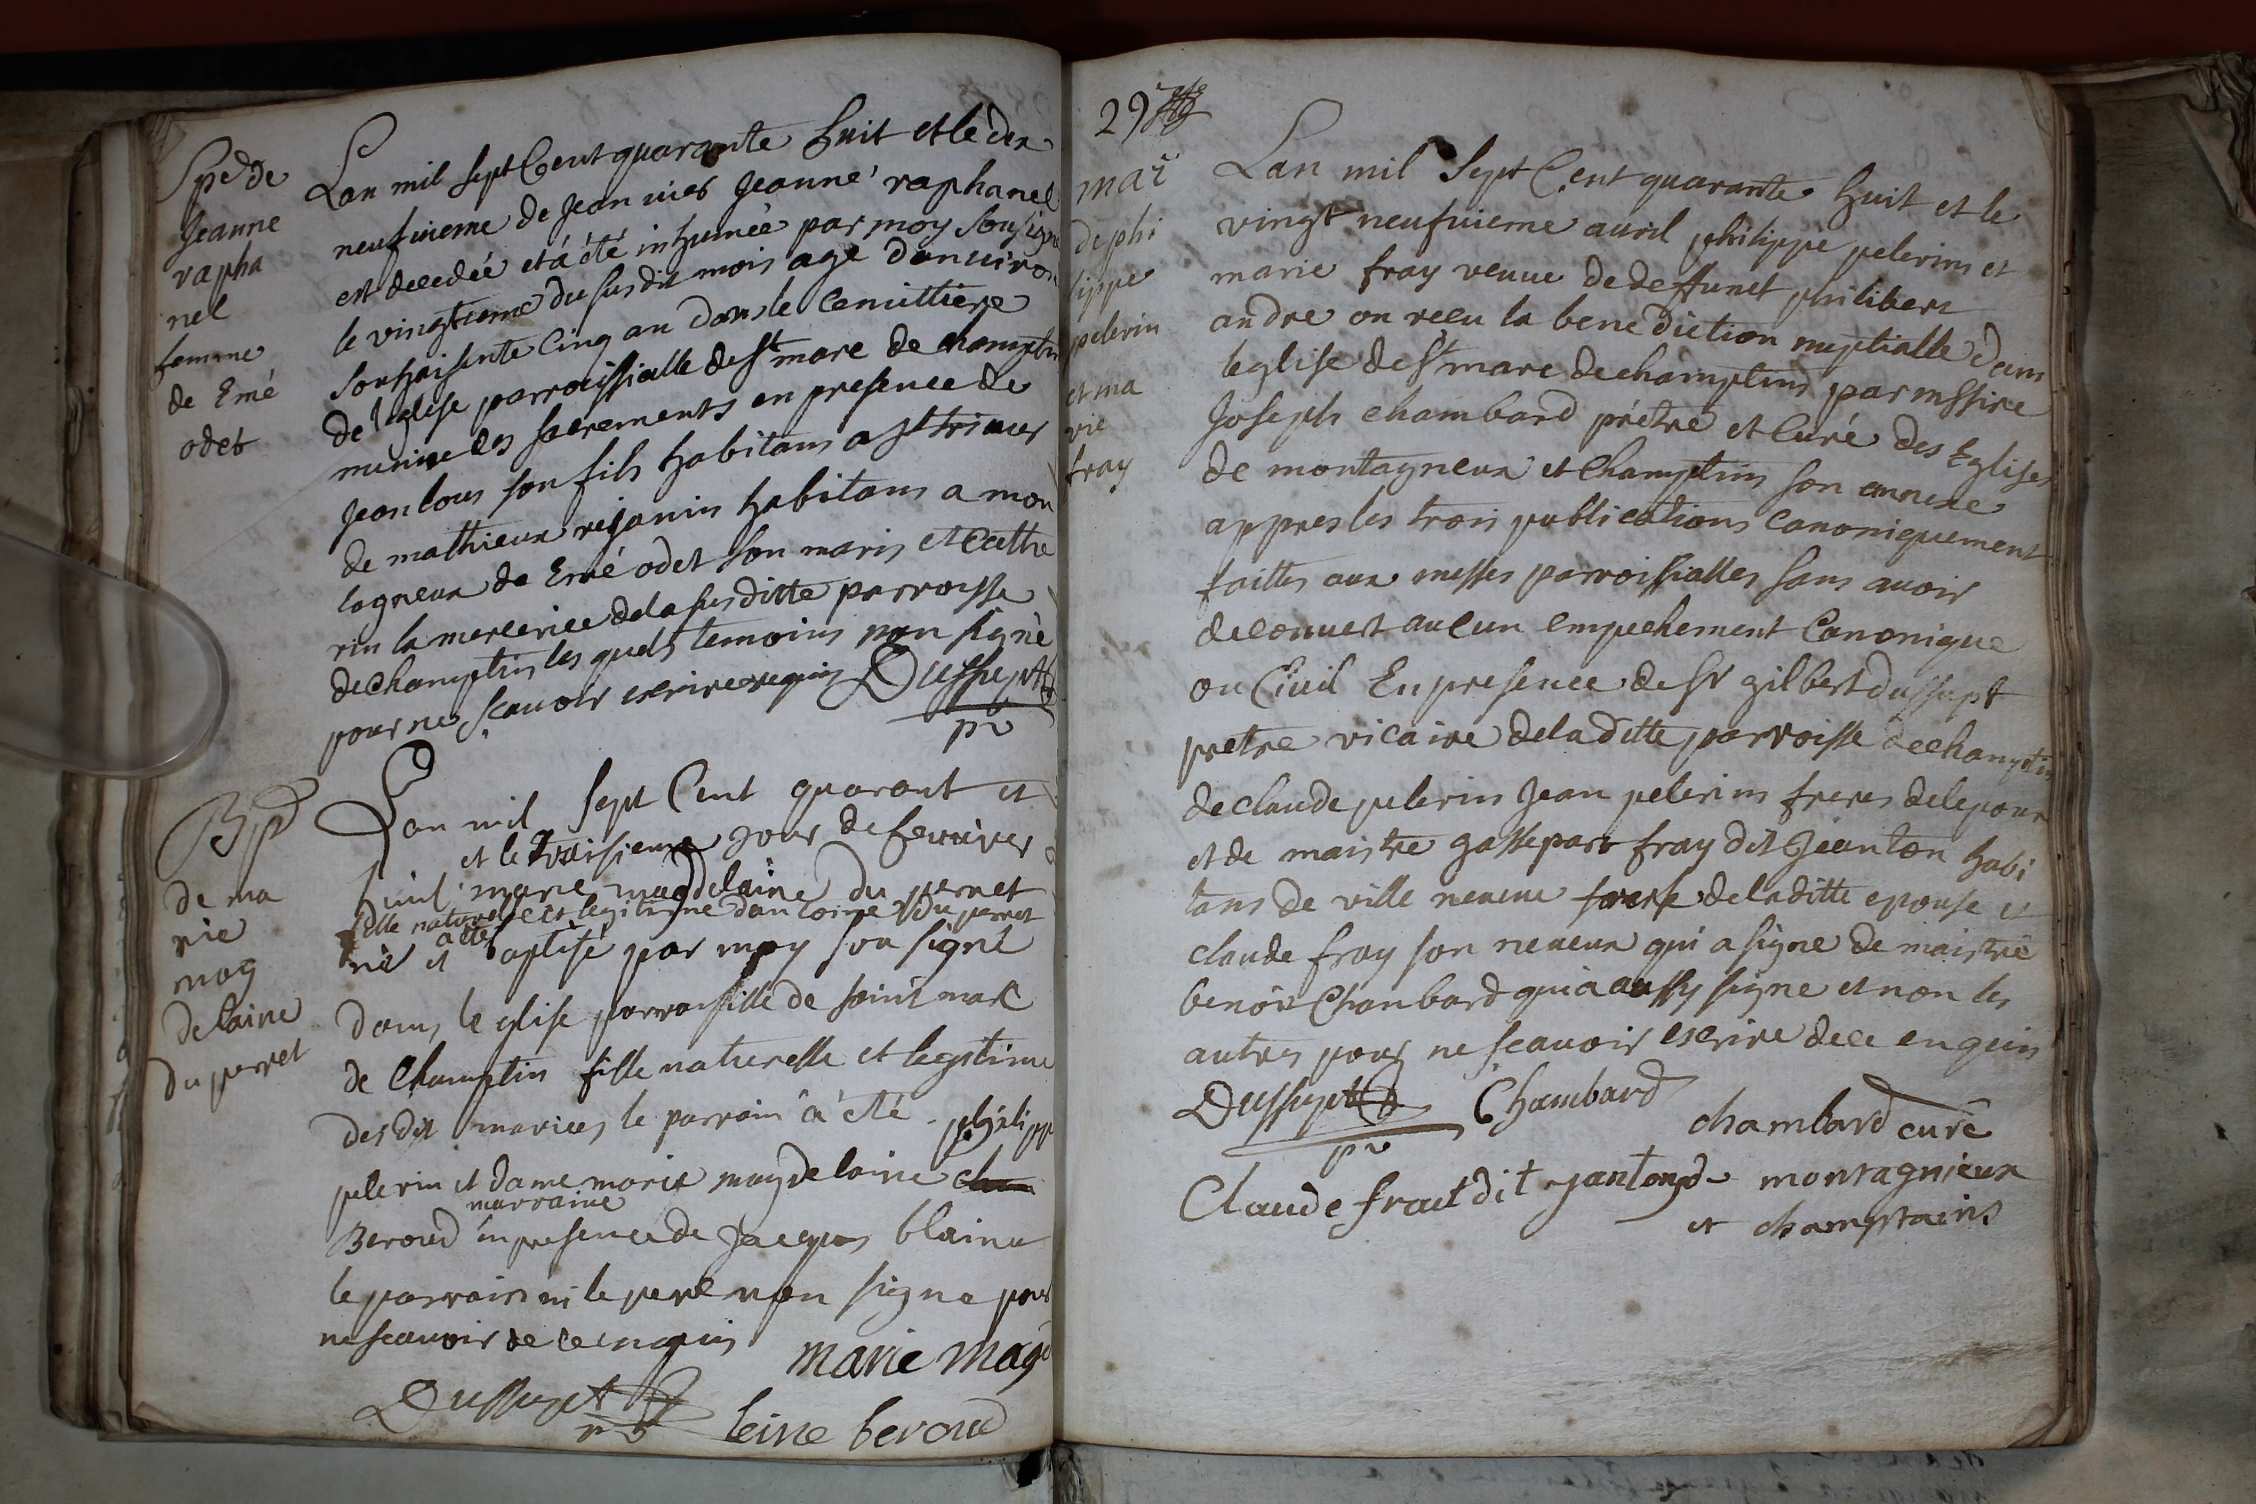 Spe de
Jeanne
rapha
nel
femme
de Emé
odet
Lan mil sept Cent quarante huit et le dix
neufuieme de Jeanuies Jeanne raphanel
est decedée et á été inhumée par moy Sousigne
le vingtieme du susdit mois age d'anuiron
soithaisente Cinq an dans le Cemittiere
de leglise parroissialle de st marc de champtin
munie des sacrements en presence de
Jean lous son fils habitans a
de mathieux rejanin habitans a mon
tagneux de Emé odet son maris et Catthe
rin la mercenie de la susditte parroisse
de Champtin les quels temoins non signé
pour ne scauoir escrire Dussupt
pr
Bp
de ma
rie
mag
delaine
du perret
Lan mil sept Cent quarant et
et le troisieme jour de feurier
huit marie magdelaine du pernet
fille naturelle et legitime dantoine du pernet
né et a ete baptisé par moy sou signé
dans le glise parroissille de saint marc
de Champtin fille naturelle et legitime
des dit maries, le parrain a été philippe
pelerin et dame marie magdelaine
marraine
Beroud en presence de Jacques blaine
le parrain ni le pere non signe pour
ne scauoir de ce enquis
marie mag
Dussupt
leine beroud
29
mar
de phi
lippe
pelerin
et ma
rie
fray
Lan mil Sept Cent quarante huit et le
vingt neufuieme auril philippe pelerin et
marie fray veuue de deffunct philibert
andre on recu la benediction nuptialle dans
leglise de st marc de champtin par messire
Joseph chambard prétre et Curé des Eglises
de montagneux et Champtin son annexe
appres les trois publications Canoniquement
faittes aux messes parroissialles sans auoir
decouuert aucun empechement Canonique
ou Ciuil En presence de Sr gilbert dussupt
pretre vicaire de la ditte parroisse de champtin
de claude pelerin Jean pelerin freres de lepoux
et de maistre gassepart fray dit Jeanton habi
tans de ville neuue frere de la ditte epouse et
claude fray son neueux qui a signe de maistre
benoit Chambard qui a aussy signe et non les
autres pour ne scauoir escrire de ce enquis
Dussupt Chambard
pr
chambard curé
Claude frait dit jantond montagnieux
et champtains